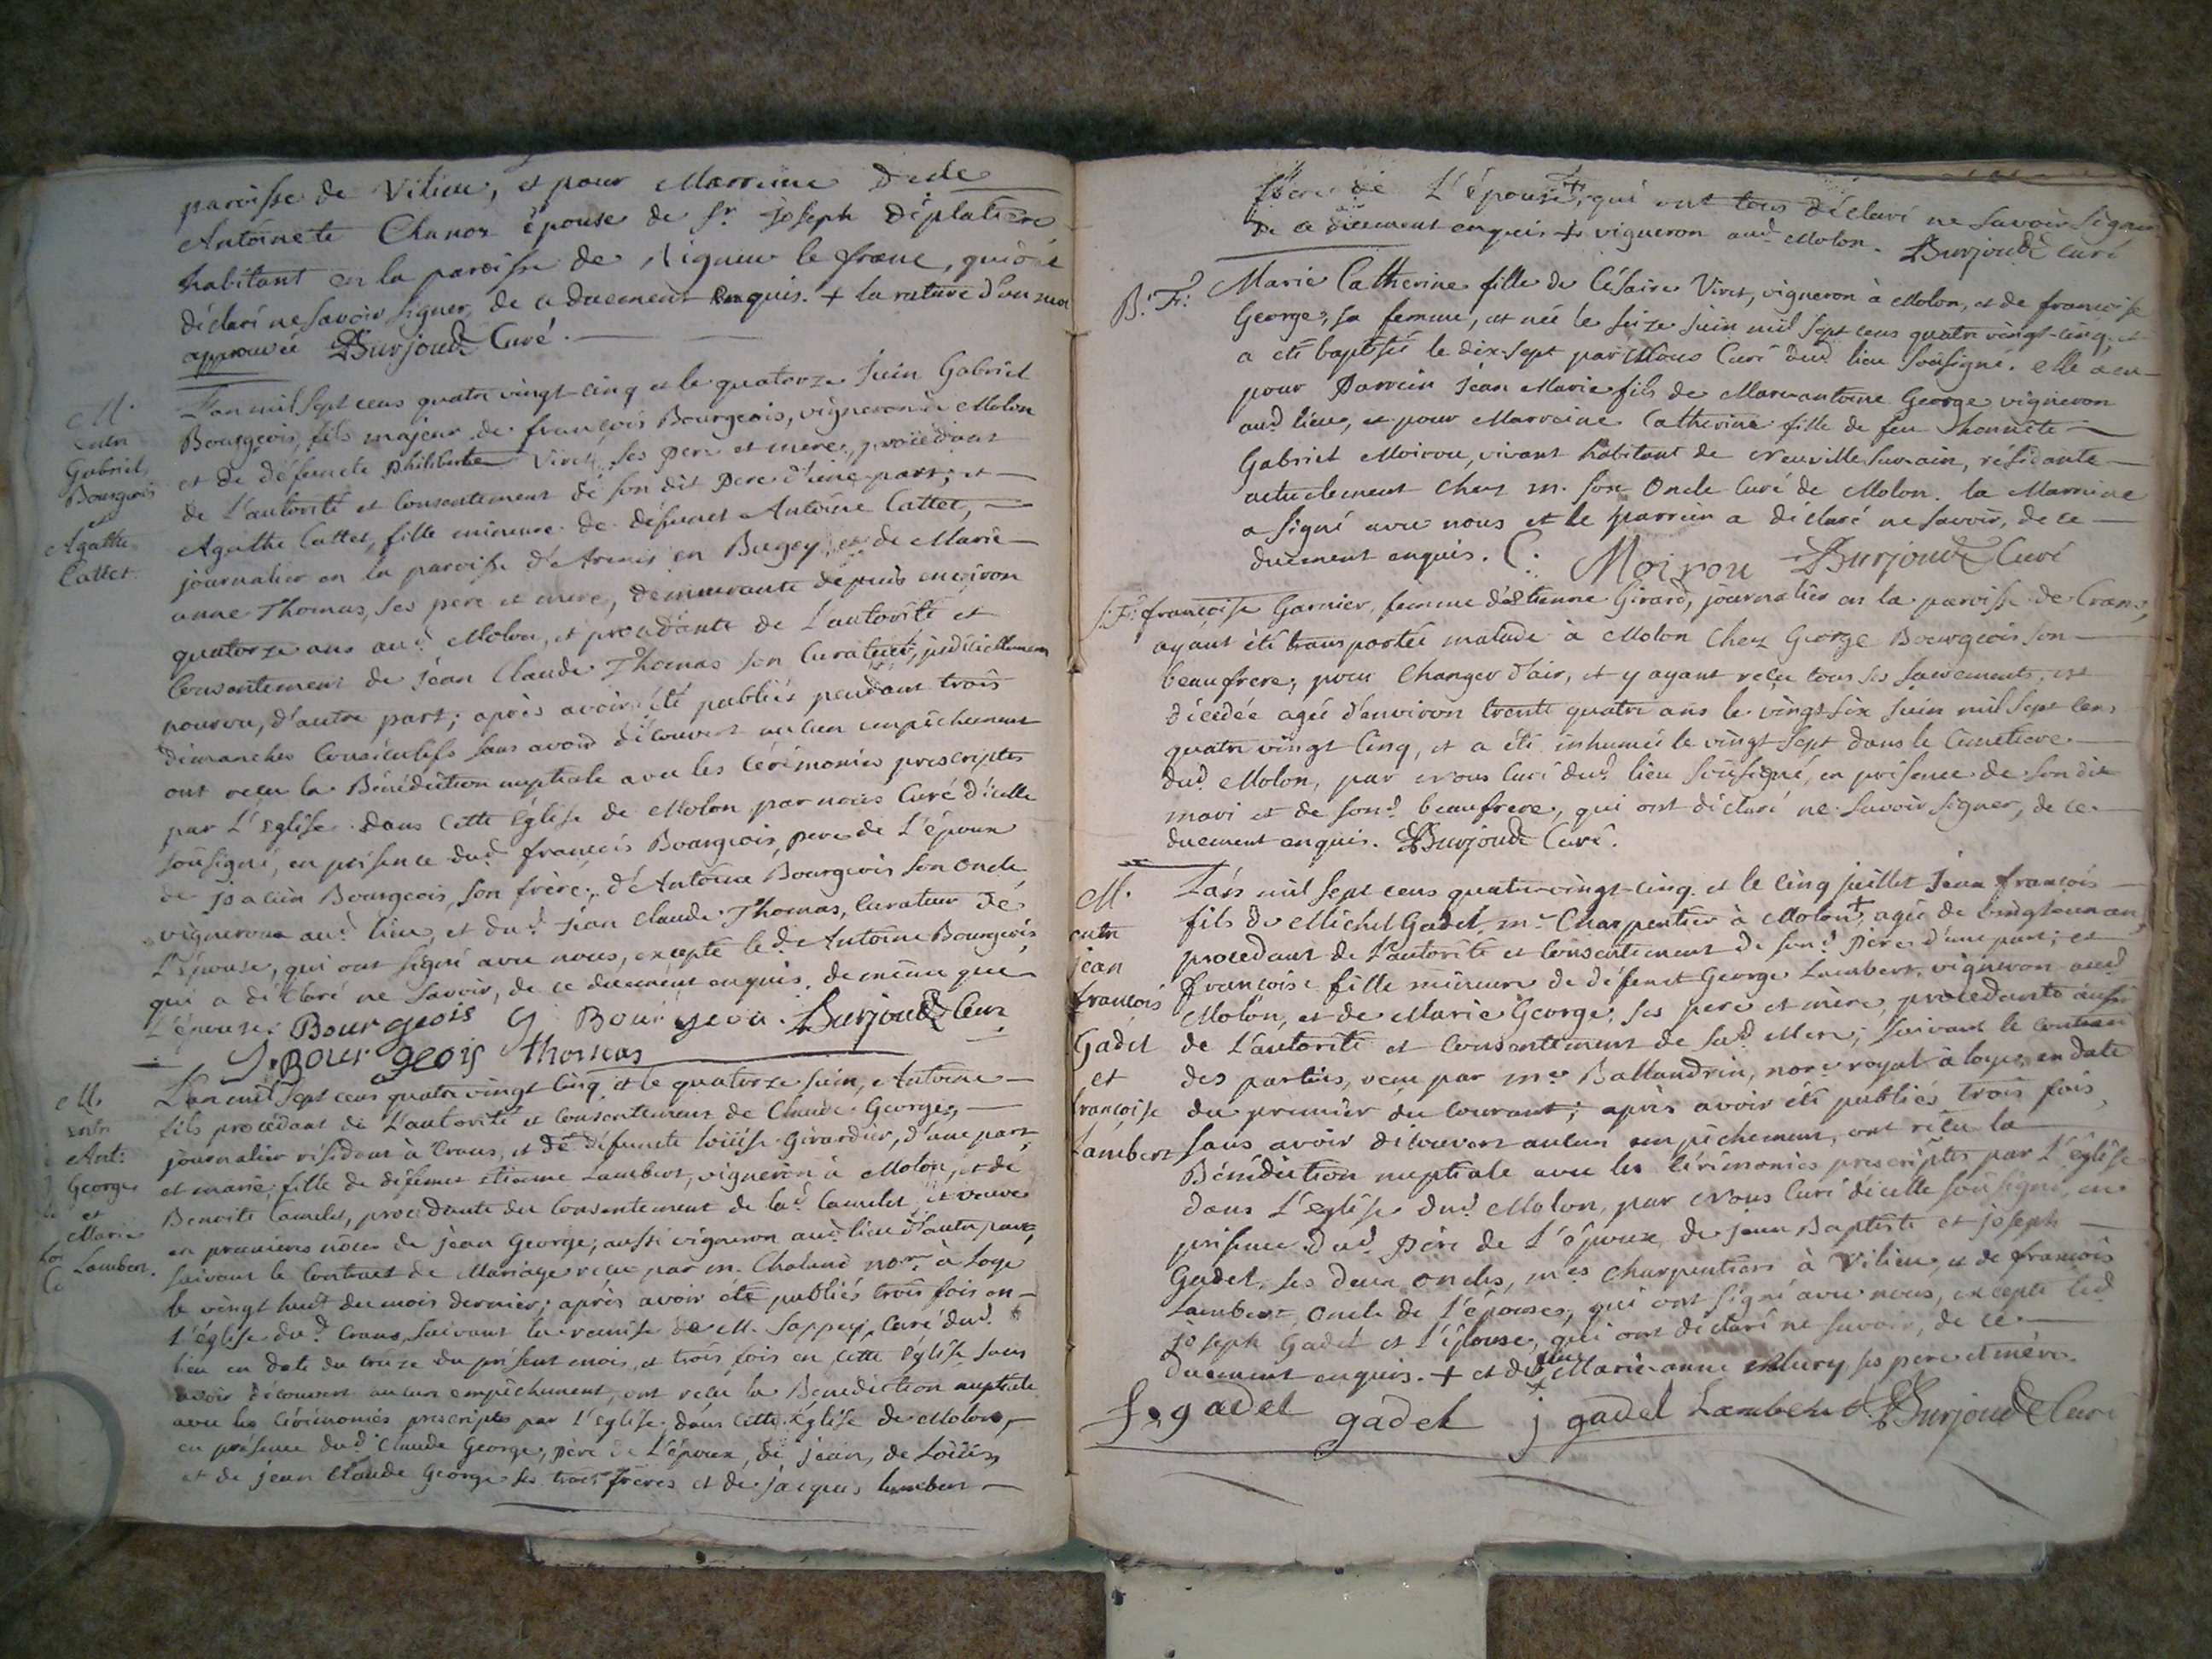 paroisse de Vilieu, et pour Marreine Dlle
Antoinete Chanoz épouse de Sr. Joseph Déplatiere
habitant en la paroisse de Rigneu le franc, qui ont
déclaré ne savoir signer, de ce duement enquis. + la rature d'un mot
approuvée Burjoud Curé.
M.
entre
Gabriel
Bourgeois
et
Agathe
Cattet
L'an mil sept cens quatre vingt-cinq et le quatorze Juin Gabriel
Bourgeois, fils majeur de françois Bourgeois, vigneron à Molon
et de défuncte philiberte Viret, ses pere et mere, procédant
de l'autorité et consentement de son dit pere d'une part; et
Agathe Cattet, fille mineure de défunct Antoine Cattet,
journalier en la paroisse d'Arenes en Bugey et de Marie
anne Thomas, ses pere et mere, demeurante depuis environ
quatorze ans aud. Molon, et procédante de l'autorité et
consentement de jean Claude Thomas son Curateur, judiciellement
pourvu, d'autre part; après avoir été publiés pendant trois
dimanches consécutifs sans avoir découvert aucun empêchement
ont reçu la Bénédiction nuptiale avec les cérémonies prescriptes
par L'eglise dans cette église de Molon par nous Curé d'icelle
soussigné, en présence dud. françois Bourgeois, pere de l'époux
de joachin Bourgeois, son frère, d'Antoine Bourgeois son oncle
vignerons aud. lieu, et dud. jean Claude Thomas, Curateur de
l'épouse, qui ont signé avec nous, excepté led. Antoine Bourgeois
qui a déclaré ne savoir, de ce duement enquis, de même que
l'épouse. Bourgeois J. Bourgeois. Burjoud Curé
J. Bourgeois Thomas
M.
entre
Ant:
George
et
Marie
Lambert.
L'an mil sept cens quatre vingt cinq et le quatorze juin, Antoine
fils procédant de l'autorité et consentement de Claude George,
journalier résidant à Crans, et de défuncte loüise Girardier, d'une part,
et marie fille de défunct etienne Lambert, vigneron à Molon, et de
Benoite Camelet, procédante du consentement de lad. Camelet et veuve
en premieres nôces de jean George, aussi vigneron aud. lieu d'autre part,
suivant le contract de Mariage reçu par m. Chaland nore. à Loye
le vingt huit du mois dernier; après avoir été publiés trois fois en
l'église dud. Crans, suivant la remise de M. Sappey, Curé dud.
lieu en date du treize du présent mois, et trois fois en cette église sans
avoir découvert aucun empêchement, ont reçu la Bénédiction nuptiale
avec les cérémonies prescriptes par l'eglise dans cette église de Molon,
en présence dud. Claude George, père de l'époux, de jean, de Loüis,
et de jean Claude George ses trois frères et de jacques Lambert
frere de l'épouse +, qui ont tous déclaré ne savoir signer
de ce duement enquis + vigneron aud. Molon. Burjoud Curé
B. F.
Marie Catherine fille de Césaire Viret, vigneron à Molon, et de françoise
George, sa femme, est née le seize juin mil sept cens quatre vingt-cinq, et
a été baptisée le dix-sept par Nous Curé dud. lieu soussigné. elle a eu
pour Parrein Jean Marie fils de Marcantoine George vigneron
aud. lieu, et pour Marreine Catherine fille de feu honnête
Gabriel Moirou, vivant habitant de Neuville sur ain, résidante
actuelement chez m. son Oncle Curé de Molon. la Marreine
a signé avec nous et le parrein a déclaré ne savoir, de ce
duement enquis. C: Moirou Burjoud Curé
S. F.
françoise Garnier, femme d'etienne Girard, journalier en la paroisse de Crans,
ayant été transportée malade à Molon chez George Bourgeois son
beaufrere, pour changer d'air, et y ayant reçu tous ses sacrements, est
décédée agée d'environ trente quatre ans le vingt six juin mil sept cens
quatre vingt cinq, et a été inhumée le vingt sept dans le cimetiere
dud. Molon, par nous Curé dud. lieu soussigné, en présence de son dit
mari et de sond. beaufrere, qui ont déclaré ne savoir signer, de ce
duement enquis. Burjoud Curé.
M.
entre
jean
françois
Gadel
et
françoise
Lambert
L'an mil sept cens quatre vingt-cinq et le cinq juillet jean françois
fils de Michel Gadel, me. Charpentier à Molon +, agée de vingt un ans
procedant de l'autorité et consentement de sond. père, d'une part; et
françoise fille mineure de défunct George Lambert, vigneron aud.
Molon, et de Marie George, ses pere et mère, procedante aussi
de l'autorité et consentement de sad. Mere; suivant le contract
des parties, reçu par me. Ballandrin, nore royal à loye, en date
du premier du courant; après avoir été publiés trois fois,
sans avoir découvert aucun empêchement, ont reçu la
Bénédiction nuptiale avec les cérémonies prescriptes par L'église
dans l'église dud. Molon, par Nous Curé d'icelle soussigné, en
présence dud. Père de l'époux, de jean Baptiste et joseph
Gadel, ses deux oncles, mes charpentiers à Vilieu, et de françois
Lambert, oncle de l'épouse, qui ont signé avec nous, excepté led.
joseph Gadel et l'épouse, qui ont déclaré ne savoir, de ce
duement enquis. + et de Marie anne Mury ses pere et mère.
f. gadel gadel j gadel Lambert Burjoud Curé